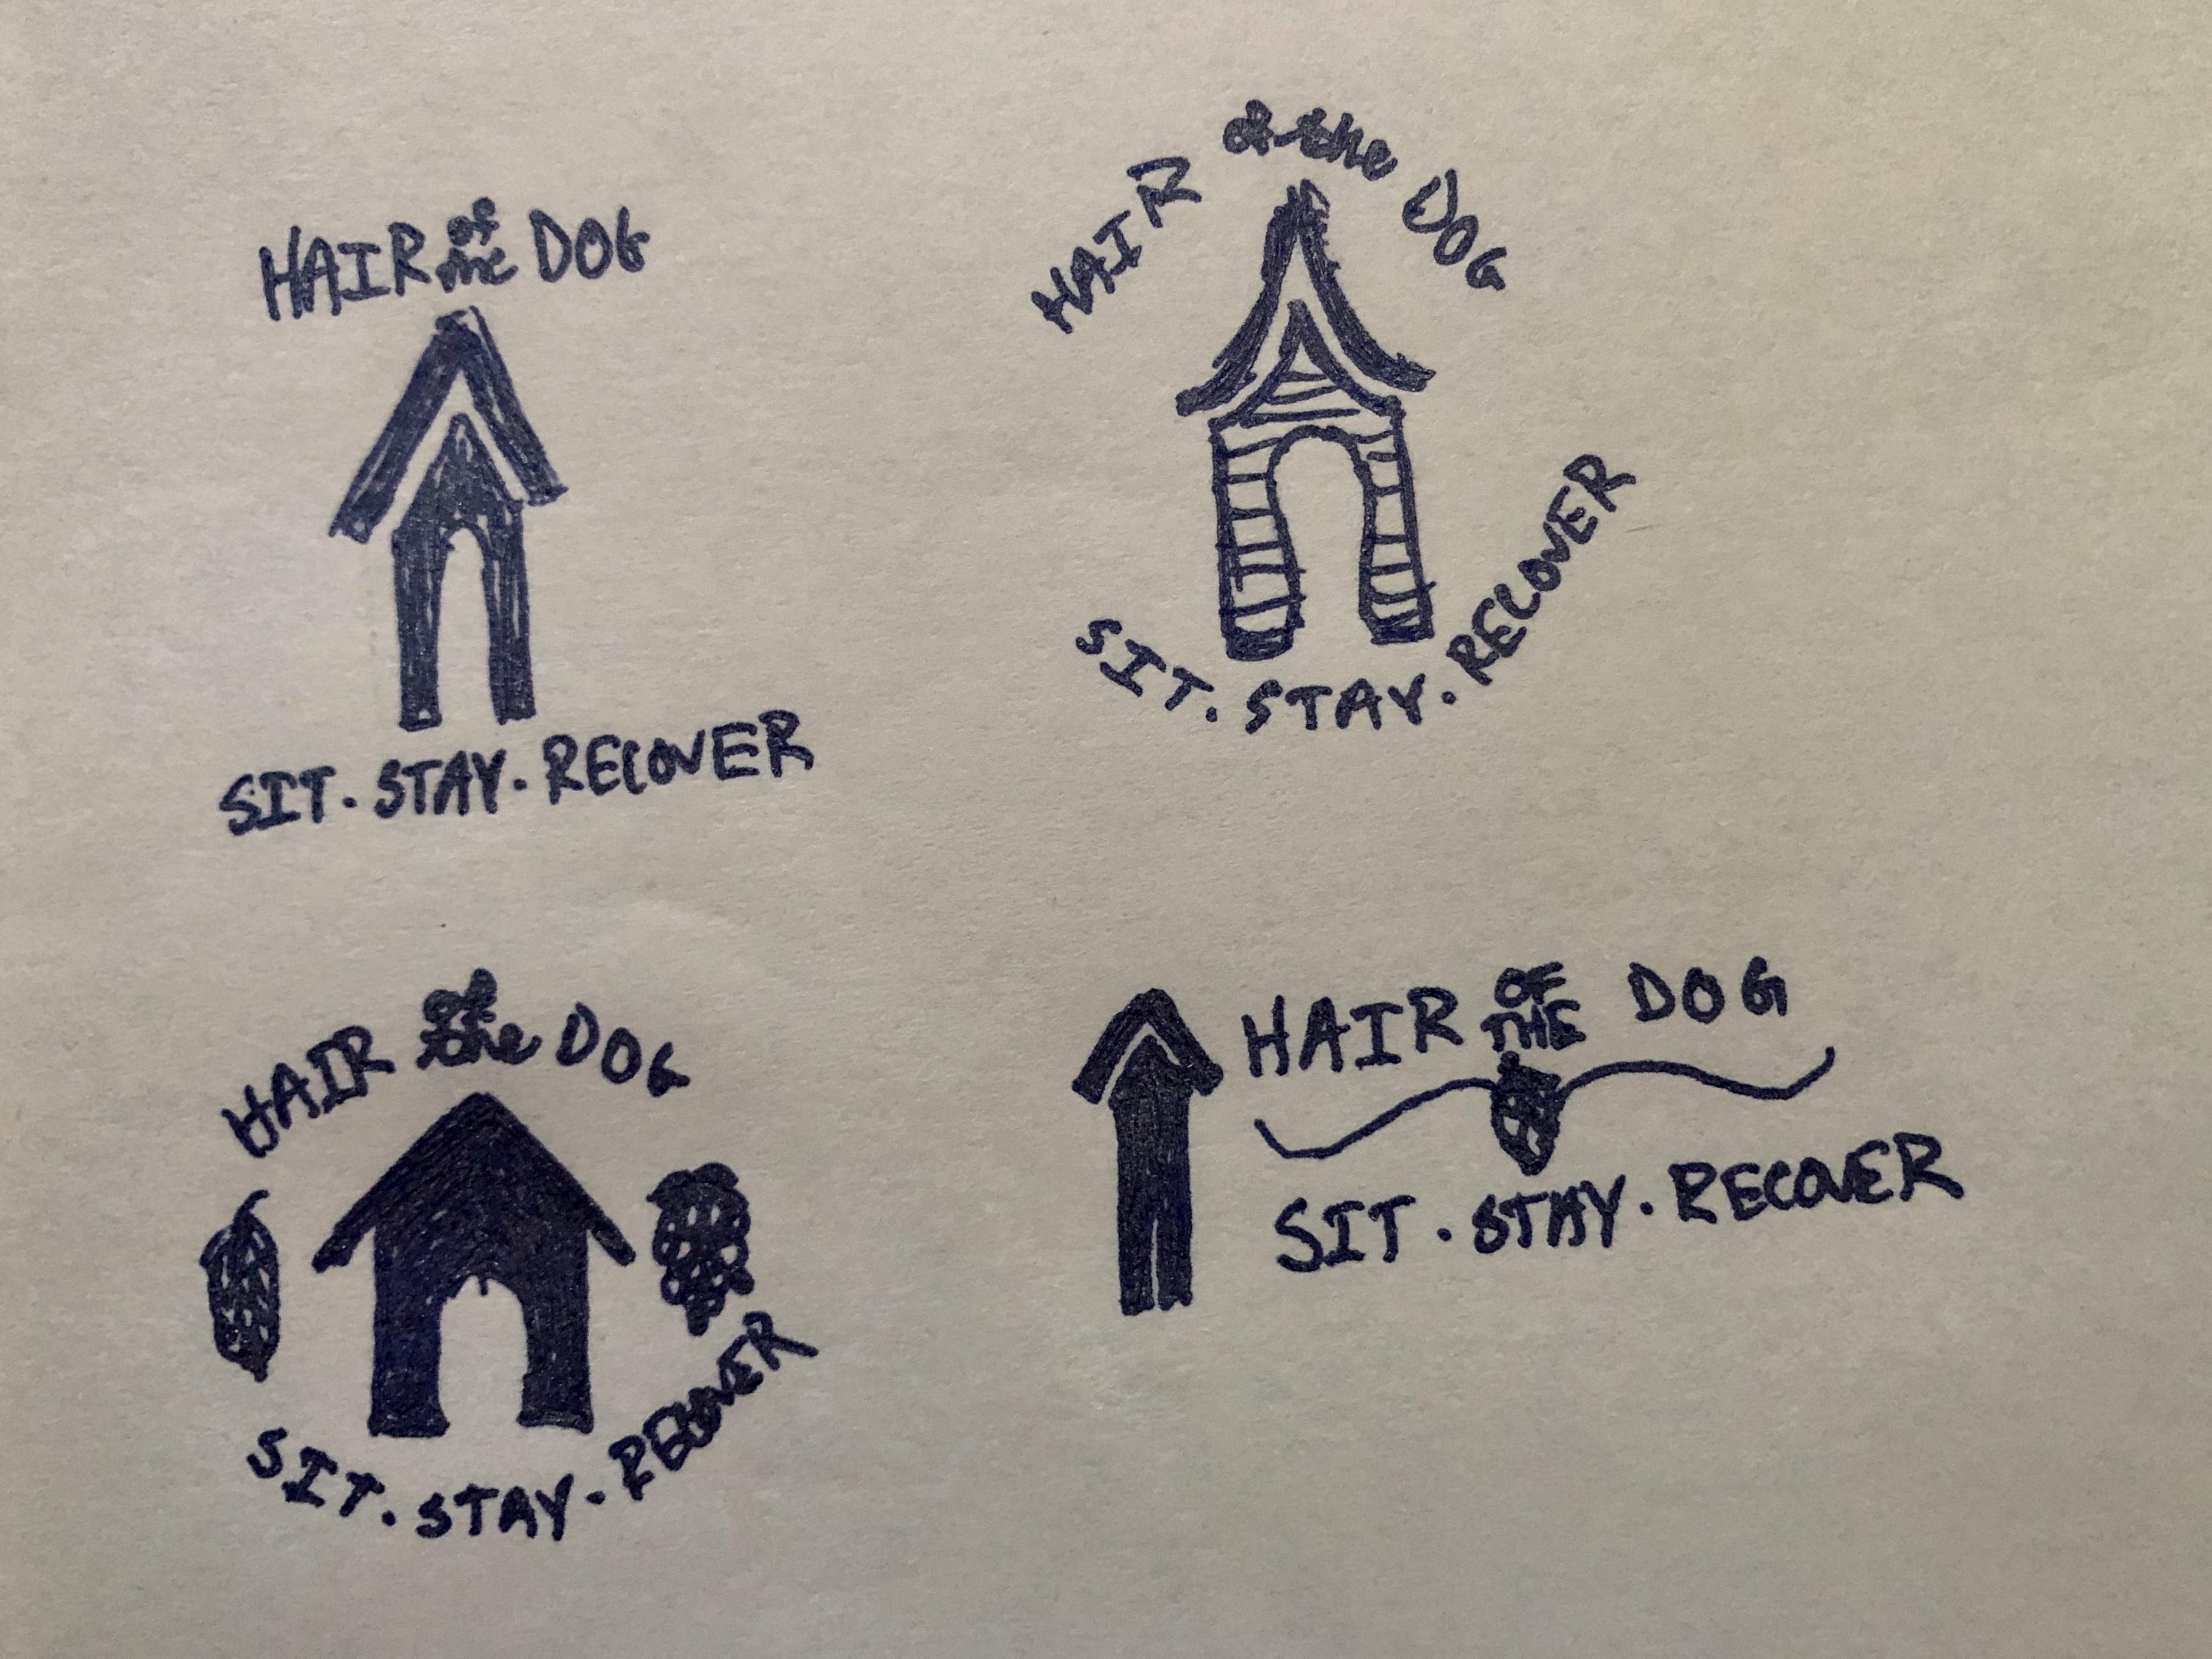 HAIR of the DOG
SIT. STAY. RECOVER
HAIR of the DOG
SIT. STAY. RECOVER
HAIR of the DOG
SIT. STAY. RECOVER
HAIR OF THE DOG
SIT. STAY. RECOVER